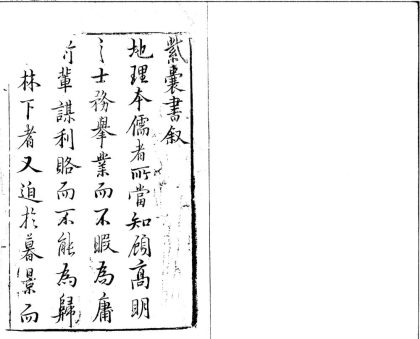 紫囊書叙
地理本儒者所當知顧高明
之士務舉業而不暇為庸
輩謀利賂而不能為歸
林下者又迫於暮景而